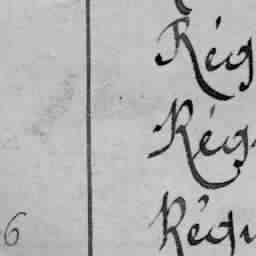 Rég
Rég
6 Régu